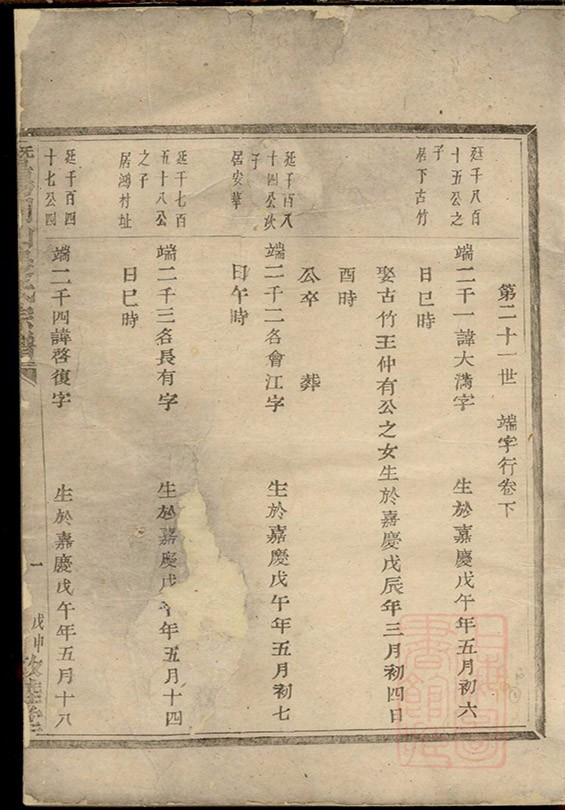 第二十一世 端字行卷下
廷千八百
十五公之
子
居下古竹
端二千一諱大滿字 生於嘉慶戊午年五月初六
日巳時
娶古竹王仲有公之女生於嘉慶戊辰年三月初四日
酉時
公卒 葬
廷千百八
十四公次
子
居安華
端二千二名會江字 生於嘉慶戊午年五月初七
日午時
廷千七百
五十八公
之子
居鴻村址
端二千三名長有字 生於嘉慶戊午年五月十四
日巳時
廷千百四
十七公四
端二千四諱啓復字 生於嘉慶戊午年五月十八
宗譜
一
戊申